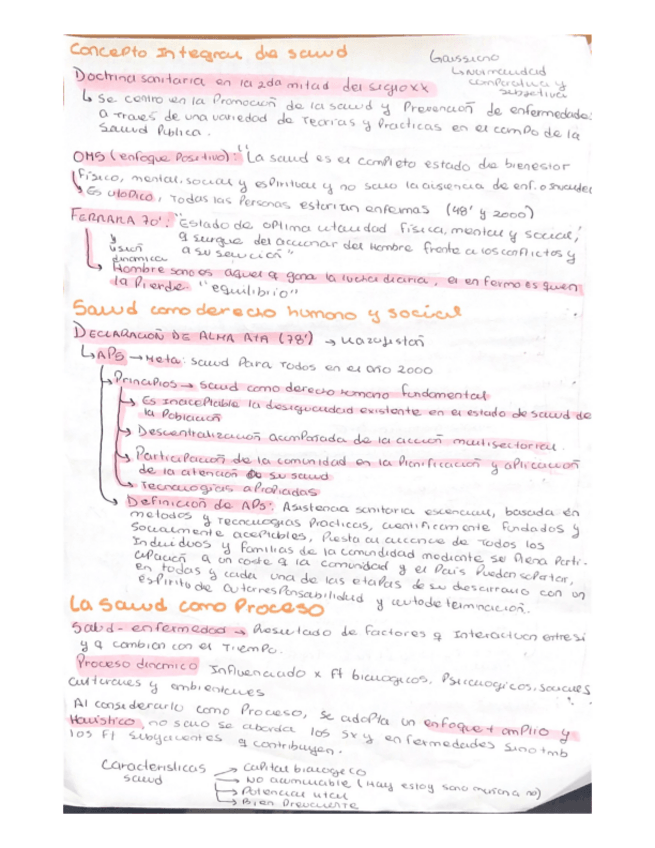 Concepto Integral de salud
Gaussiano
↳ Normalidad
comparativa y
subjetiva
Doctrina sanitaria en la 2da mitad del siglo XX
↳ Se centro en la Promoción de la salud y Prevención de enfermedades
a traves de una variedad de Teorias y Practicas en el campo de la
Salud Publica.
OMS (enfoque Positivo): "La salud es el completo estado de bienestar
Físico, mental, social y espiritual y no solo la ausencia de enf. o
↳ Es utópico, Todas las Personas estarian enfermas (48' y 2000)
FERRARA 70': "Estado de optima vitalidad física, mental y social,
q surgue del accionar del Hombre frente a los conflictos y
a su solución"
y
visión
dinamica
↳ Hombre sano es aquel q gana la lucha diaria, el enfermo es quien
la Pierde "equilibrio"
Salud como derecho humano y social
DECLARACIÓN DE ALMA ATA (78') → Kazajistán
↳ APS → Meta: salud Para Todos en el año 2000
↳ Principios → salud como derecho Humano fundamental
↳ Es inaceptable la desigualdad existente en el estado de salud de
la Población
↳ Descentralización acompañada de la acción multisectorial.
↳ Participación de la comunidad en la Planificación y aplicación
de la atención de su salud
↳ Tecnologías apropiadas
↳ Definición de APS: Asistencia sanitaria esencial, basada en
metodos y Tecnologias Practicas, cientificamente fundados y
Socialmente aceptables, Puesta al alcance de Todos los
Individuos y familias de la comunidad mediante su Plena Parti-
cipación a un coste q la comunidad y el Pais Puedan soportar,
en todas y cada una de las etapas de su desarrollo con un
espiritu de autorresponsabilidad y autodeterminación.
La Salud como Proceso
Salud-enfermedad → Resultado de factores q Interactuan entre si
y q cambian con el Tiempo.
Proceso dinámico Influenciado x Ft biologicos, Psicologicos, sociales
culturales y ambientales
Al considerarlo como Proceso, se adopta un enfoque + amplio y
Holistico, no solo se aborda los Sx y enfermedades sino tmb
los Ft subyacentes q contribuyen.
Caracteristicas
salud
→ Capital biologico
→ No acumulable (Hoy estoy sano mañana no)
→ Potencial vital
→ Bien Preveniente